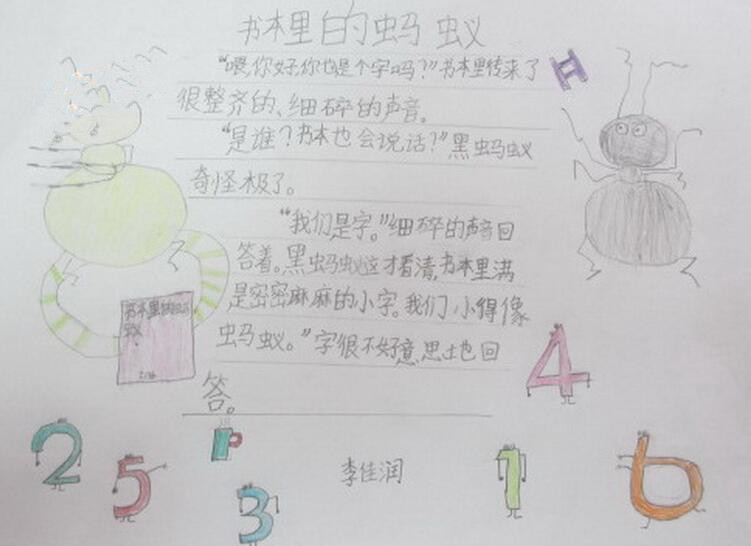 书本里的蚂蚁
“喂,你好,你也是个字吗?”书本里传来了
很整齐的、细碎的声音。
“是谁?书本也会说话?”黑蚂蚁
奇怪极了。
“我们是字。”细碎的声音回
答着。黑蚂蚁这才看清,书本里满
是密密麻麻的小字。我们小得像
蚂蚁。”字很不好意思地回
答。
书本里的蚂
蚁
4
2
5
3
李佳润
1
6